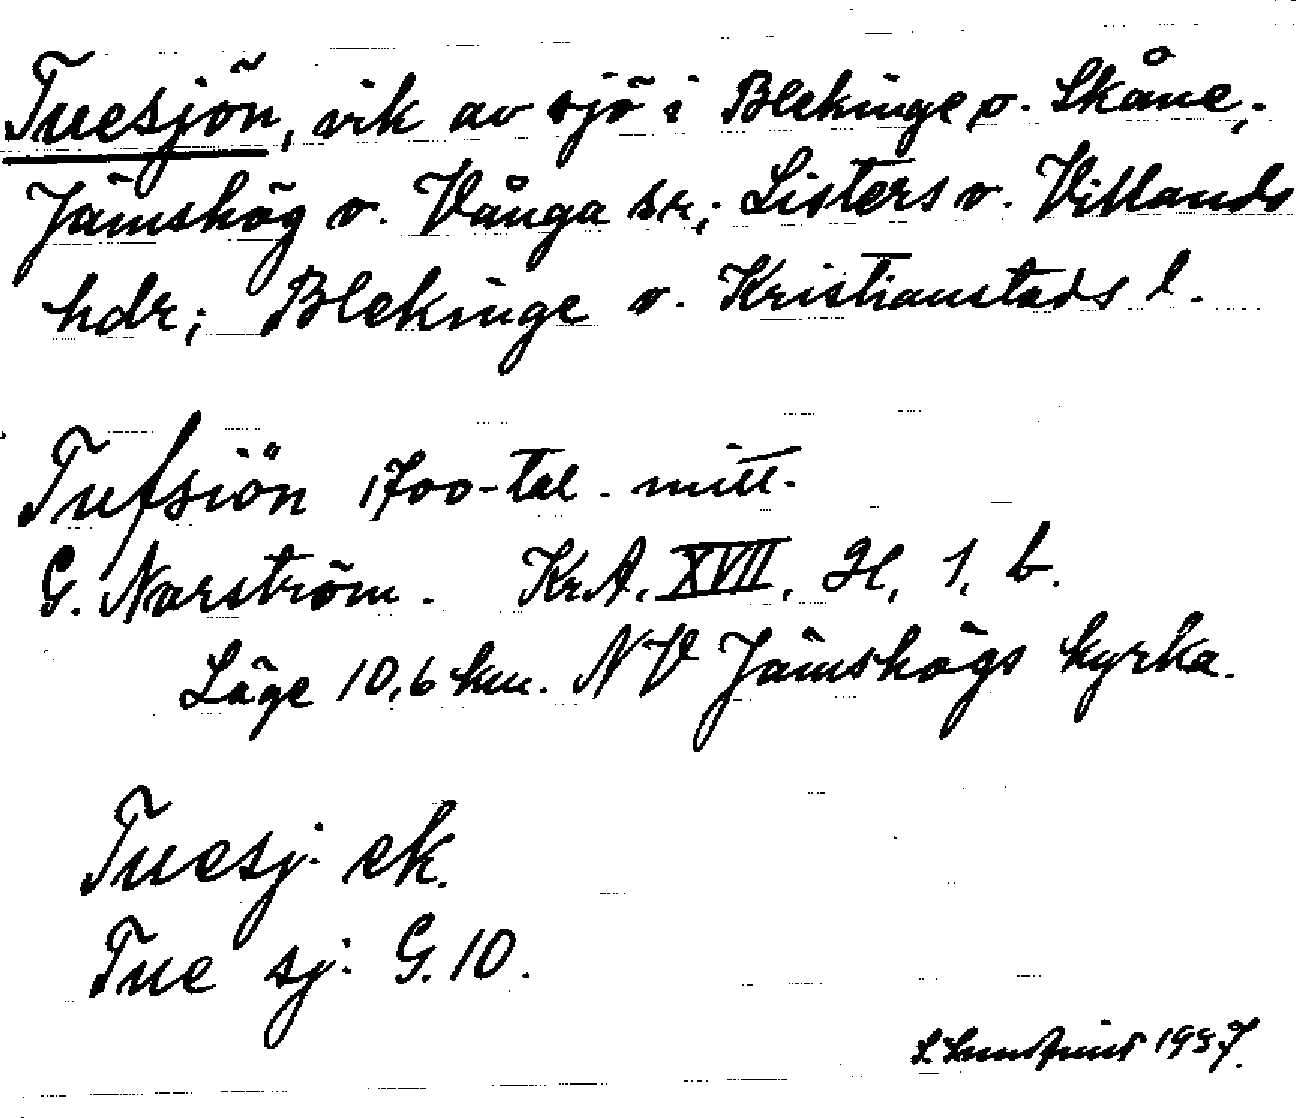 Tuesjön, vik av sjö i Blekinge o. Skåne;
Jämshög o. Vånga sn; Listers o. Villands
hdr; Blekinge o. Kristianstads l.
Tufsiön 1700-tal. mitt.
G. Norström. KrA. XVII, H, 1, b.
Läge 10,6 km. NV Jämshögs kyrka.
Tuesj. ek.
Tue sj. G. 10.
1937.